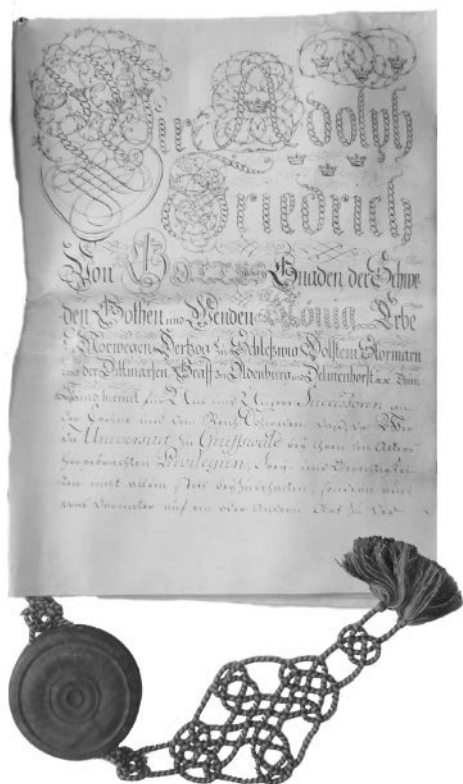 Wir Adolph
Friedrich
Von GOTTES Gnaden der Schwe
den, Gothen und Wenden König Erbe
zu Norwegen, Hertzog zu Schleswig Holstein Stormarn
und der Dittmarsen, Graff zu Oldenburg und Delmenhorst
für Uns und Unsere Successoren an
der Crohne und dem Reich Schweden, daß,
die Universitæt zu Greiffswald bey ihren von Alters
hergebrachten Privilegien,
nicht allein stets beyzuerhalten, sondern auch
auf ein oder Andern